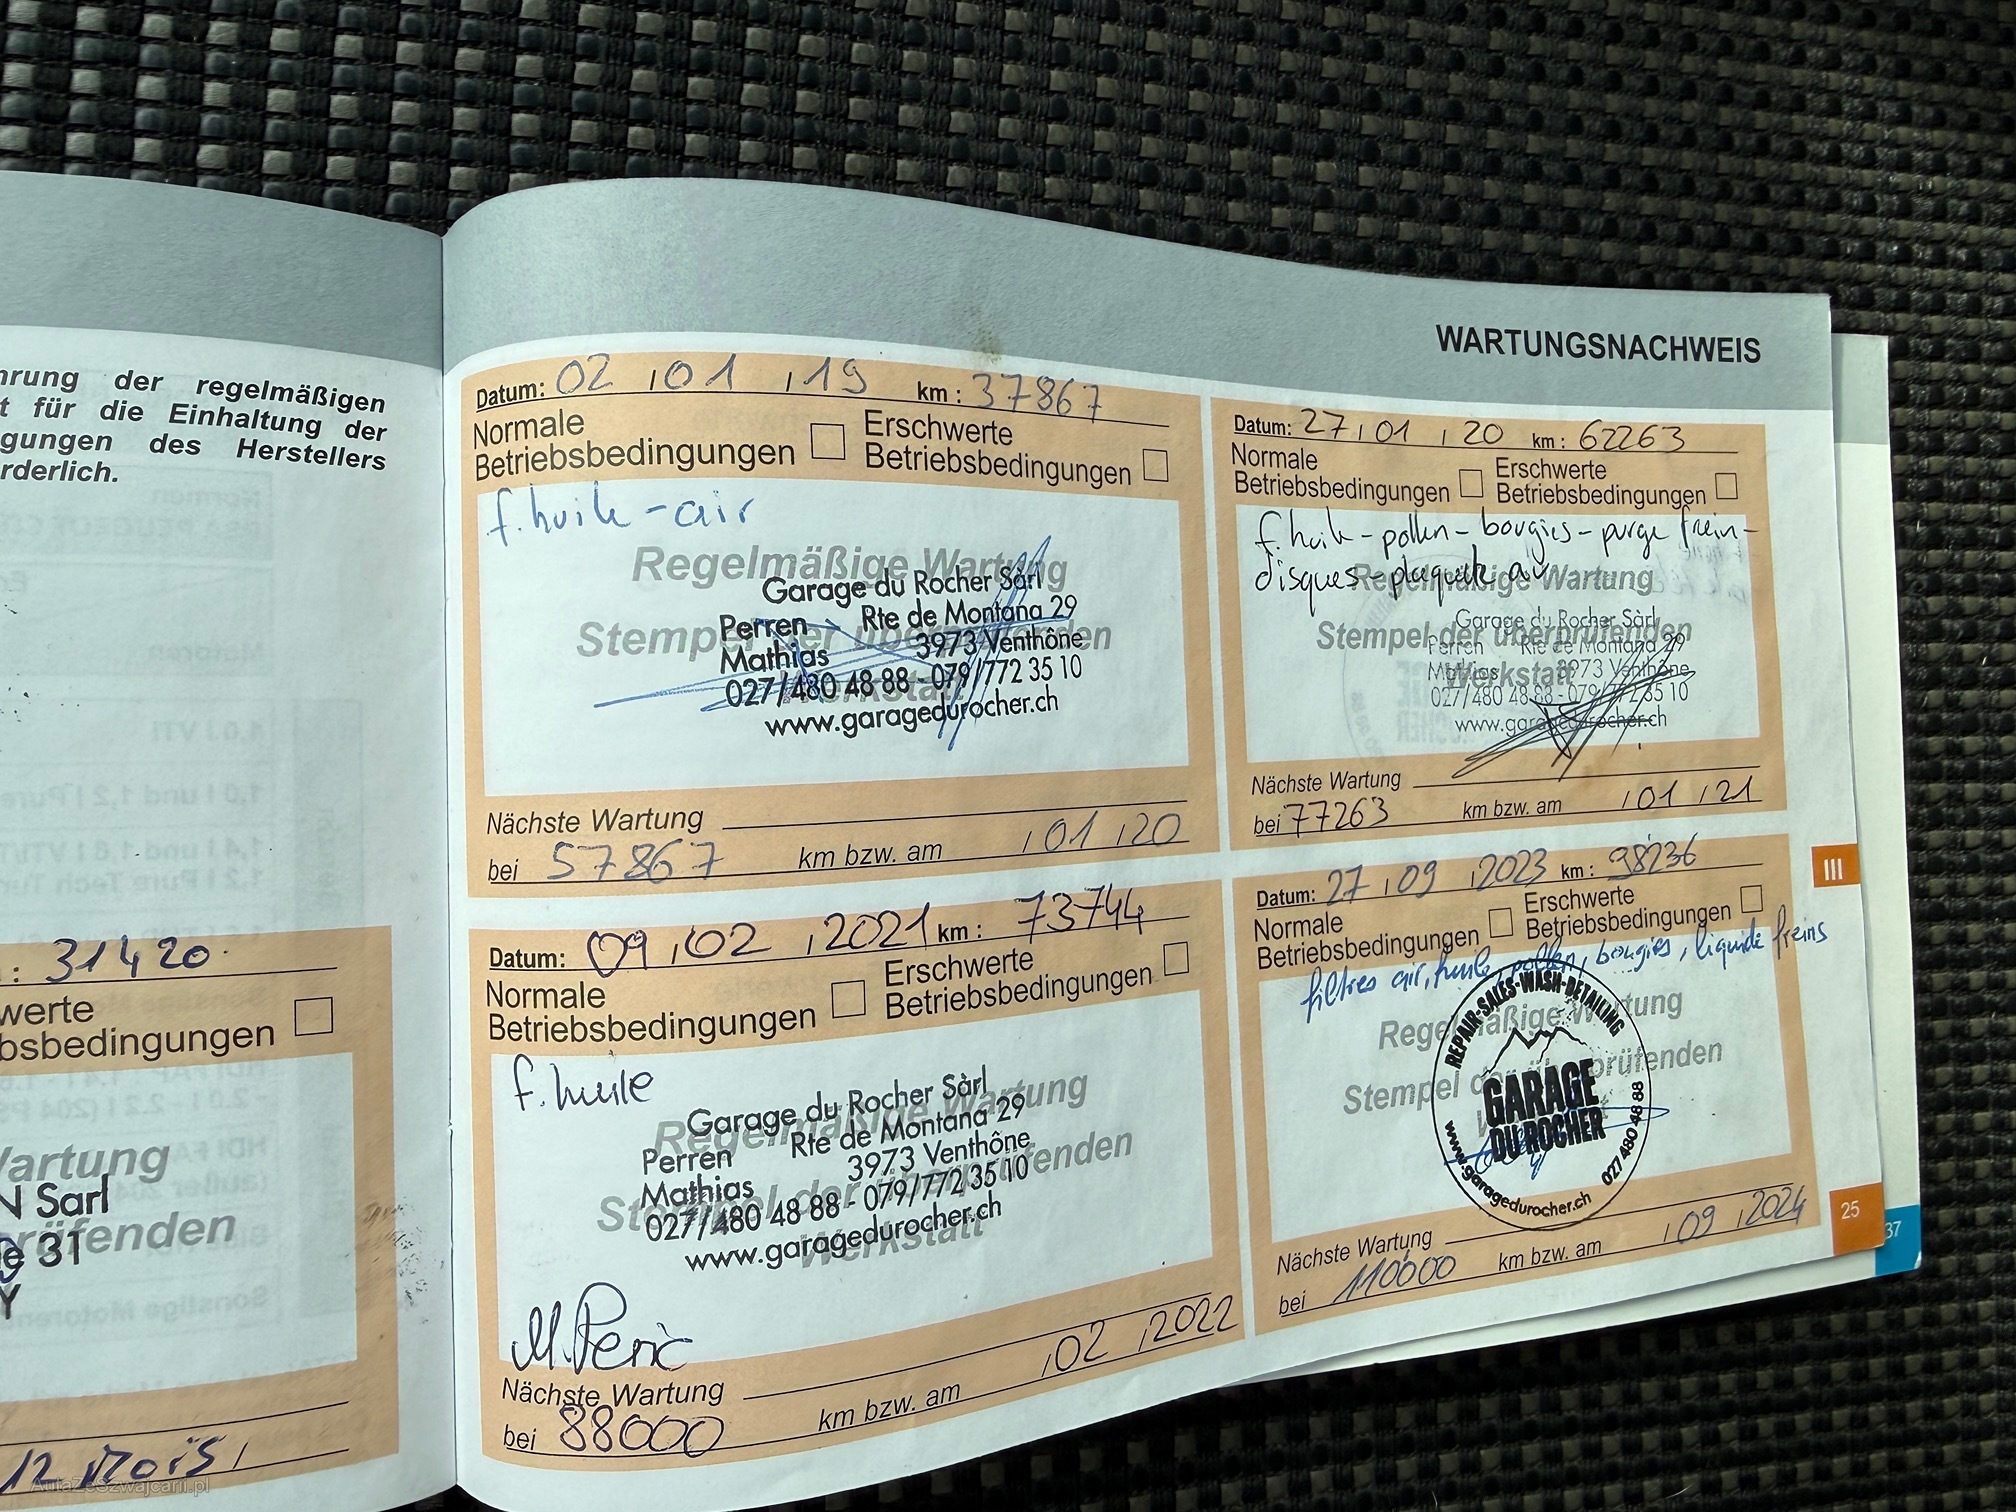 WARTUNGSNACHWEIS
der regelmäßigen
für die Einhaltung der
des Herstellers
31420
Wartung
Sarl
31
12 Mois
Datum: 02 01 19 km: 37867
Normale Betriebsbedingungen
Erschwerte Betriebsbedingungen
f. huile - air
Regelmäßige Wartung
Stempel der überprüfenden
Werkstatt
Garage du Rocher Sàrl
Perren Rte de Montana 29
Mathias 3973 Venthône
027/480 48 88 - 079/772 35 10
www.garagedurocher.ch
Nächste Wartung
bei 57867 km bzw. am 01 20
Datum: 27 01 20 km: 62263
Normale Betriebsbedingungen
Erschwerte Betriebsbedingungen
f. huile - pollen - bougies - purge frein -
disques - plaquette av
Regelmäßige Wartung
Stempel der überprüfenden
Werkstatt
Garage du Rocher Sàrl
Perren Rte de Montana 29
Mathias 3973 Venthône
027/480 48 88 - 079/772 35 10
www.garagedurocher.ch
Nächste Wartung
bei 77263 km bzw. am 01 21
Datum: 09 02 2021 km: 73744
Normale Betriebsbedingungen
Erschwerte Betriebsbedingungen
f. huile
Regelmäßige Wartung
Stempel der überprüfenden
Werkstatt
Garage du Rocher Sàrl
Perren Rte de Montana 29
Mathias 3973 Venthône
027/480 48 88 - 079/772 35 10
www.garagedurocher.ch
Nächste Wartung
bei 88000 km bzw. am 02 2022
Datum: 27 09 2023 km: 98236
Normale Betriebsbedingungen
Erschwerte Betriebsbedingungen
filtres air, huile, pollen, bougies, liquide freins
Regelmäßige Wartung
Stempel der überprüfenden
REPAIR-SALES-WASH-DETAILING
GARAGE
DU ROCHER
www.garagedurocher.ch 027 480 48 88
Nächste Wartung
bei 110000 km bzw. am 09 2024
III
25
37
AutaZeSzwajcarii.pl